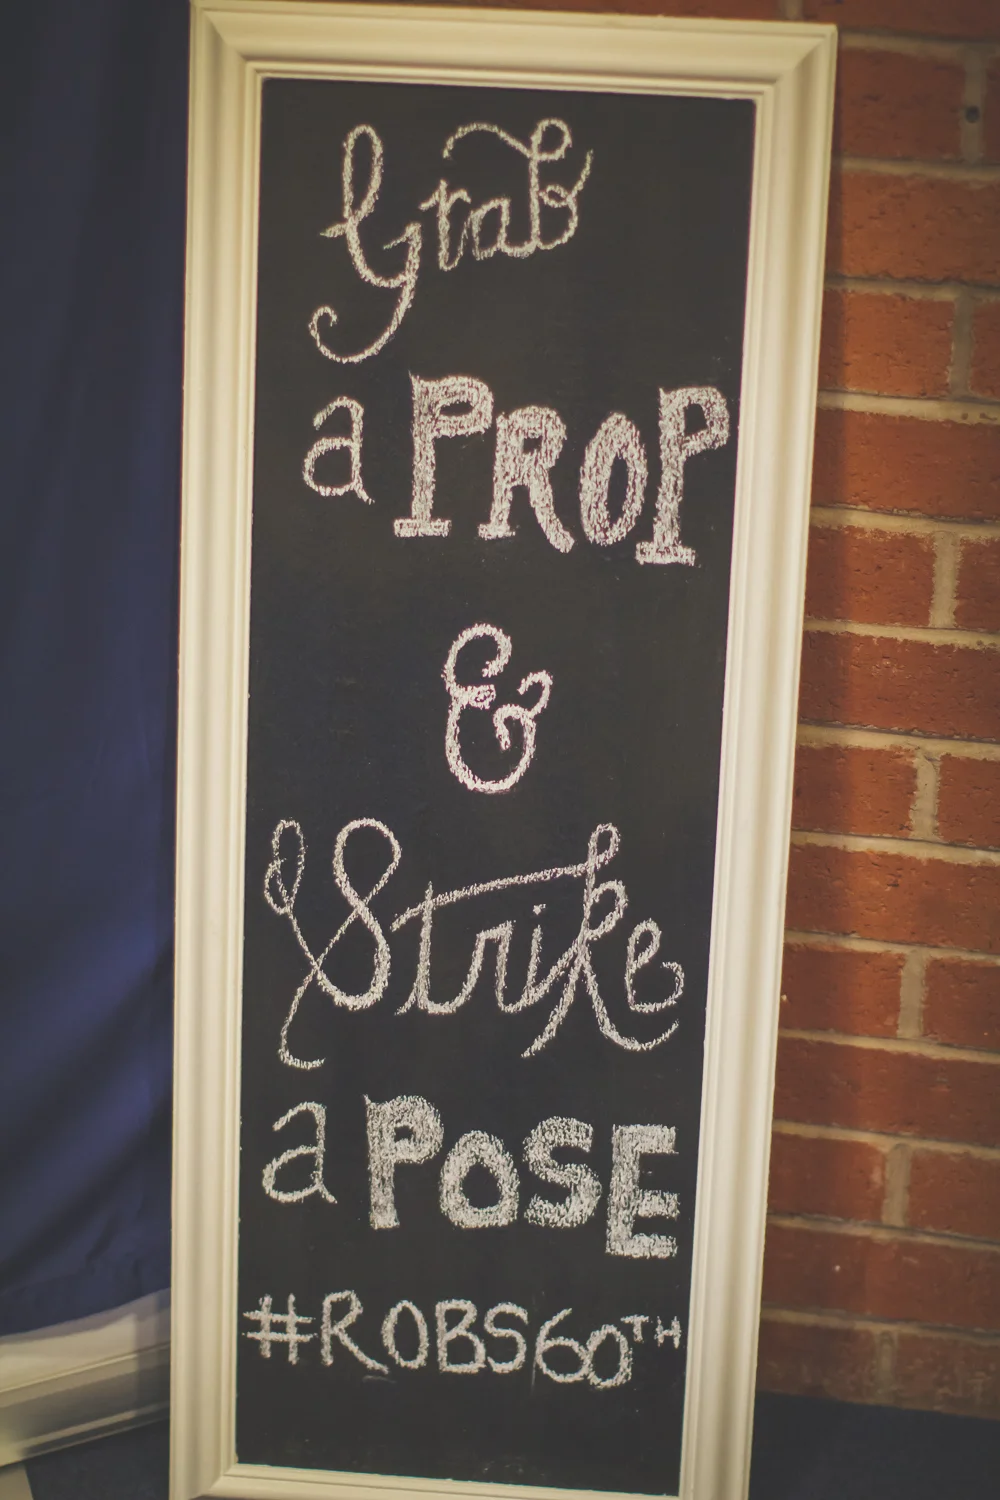 Grab
a PROP
&
Strike
a POSE
#ROBS60TH